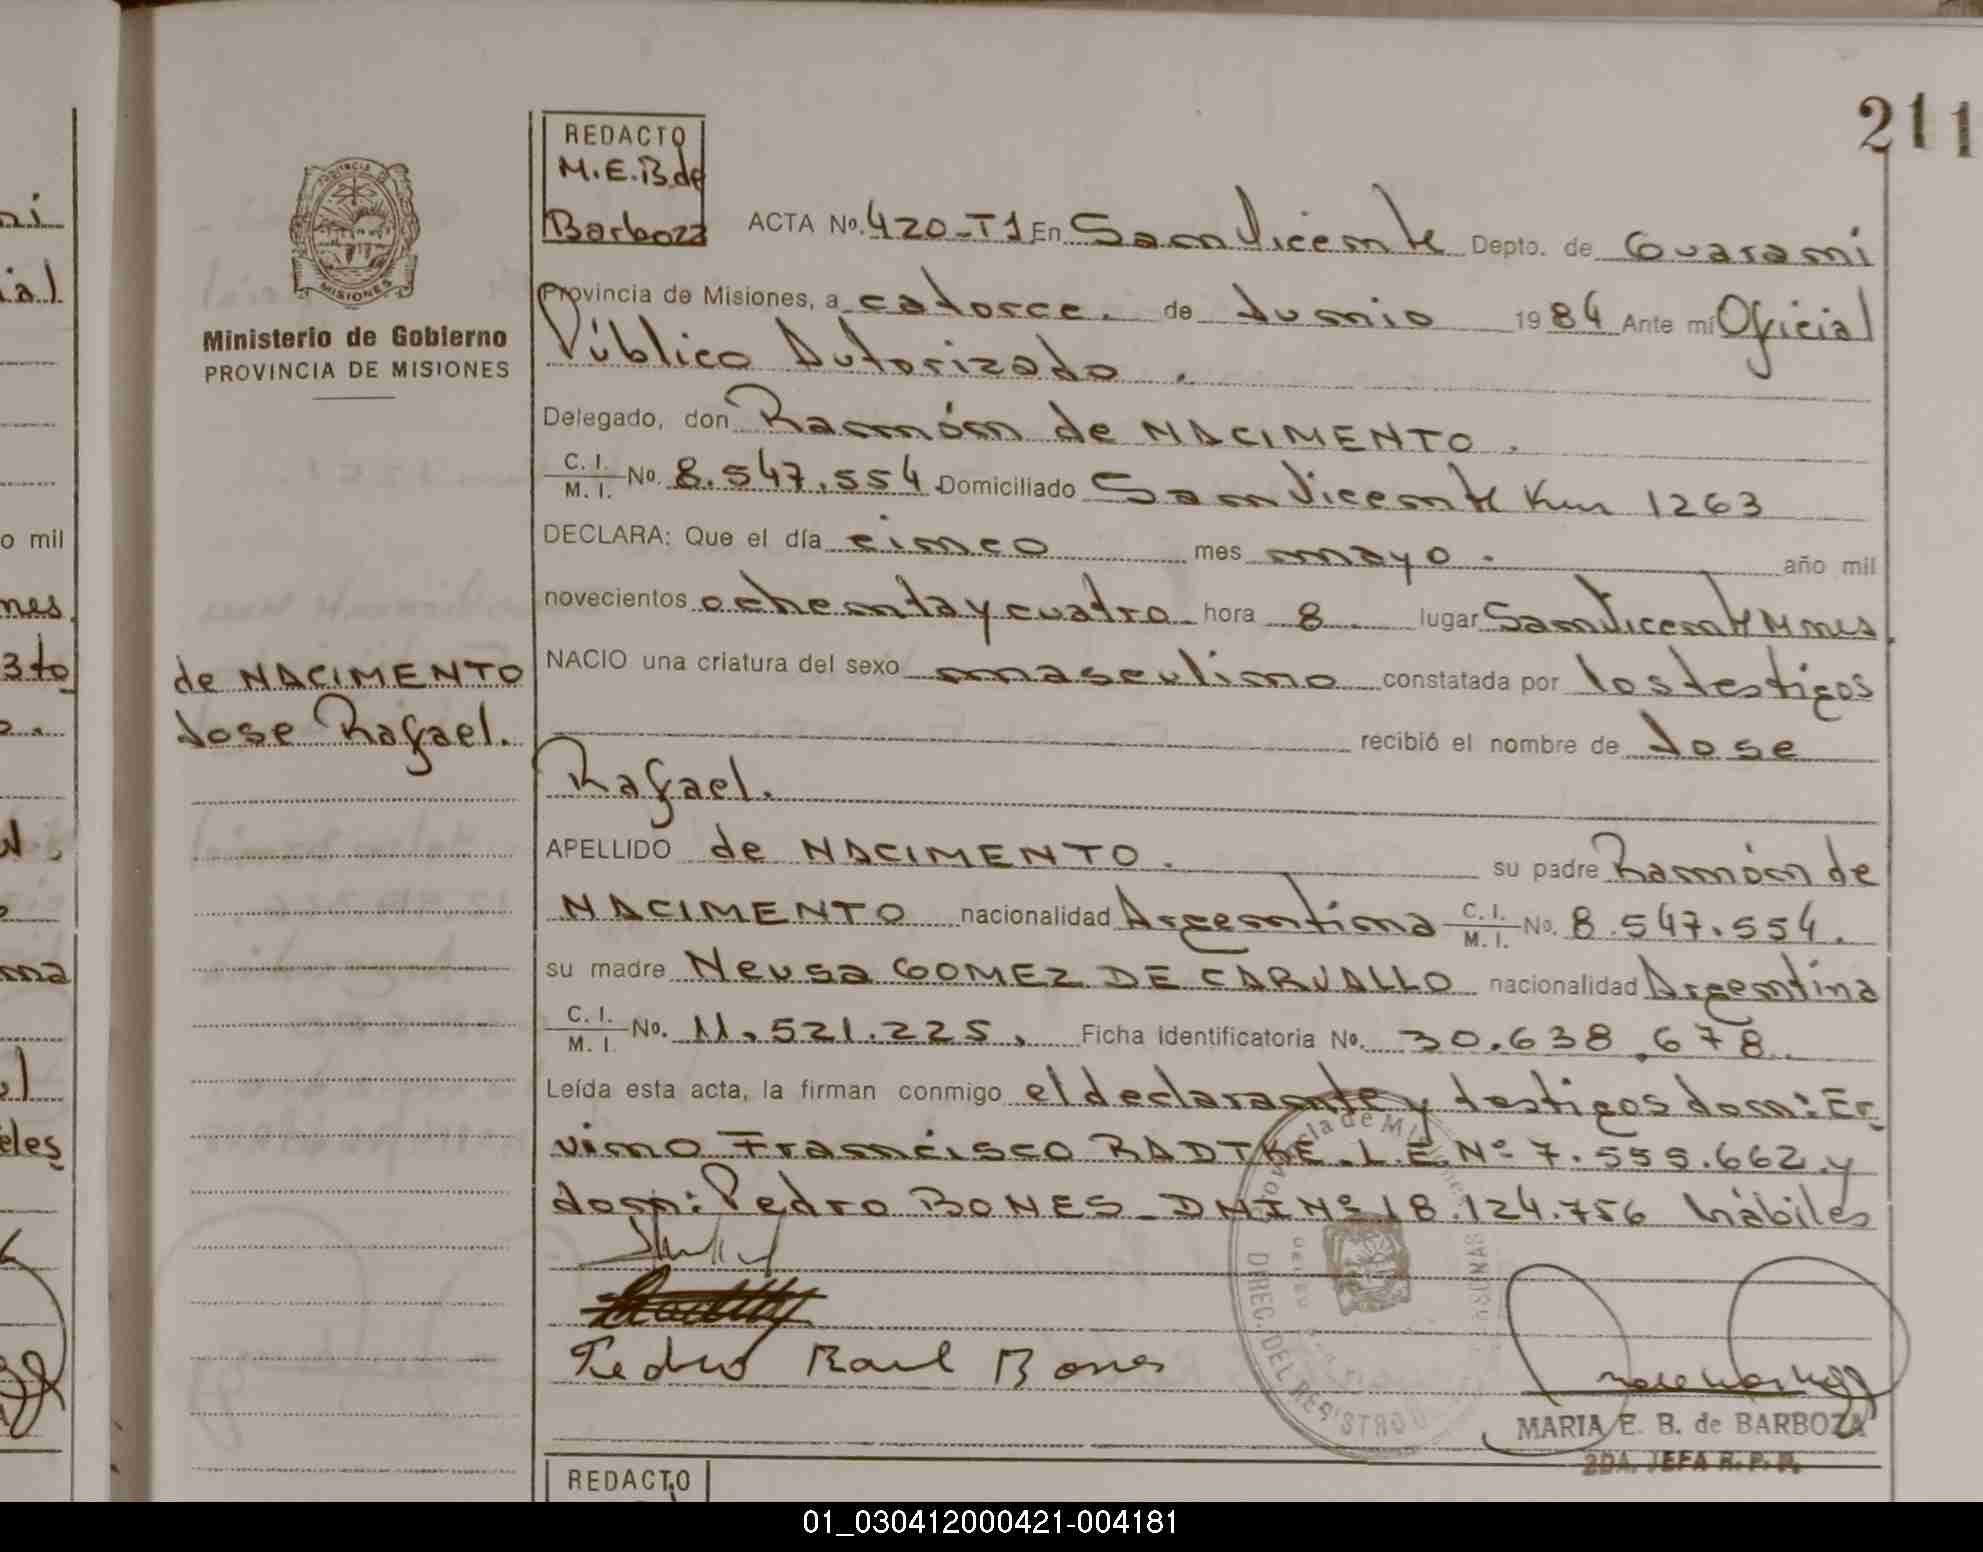 211
REDACTO
M.E.B.de
Barboza
PROVINCIA DE
MISIONES
Ministerio de Gobierno
PROVINCIA DE MISIONES
ACTA No. 420-T1 En San Vicente Depto. de Guarani
Provincia de Misiones, a catorce. de Junio 1984 Ante mí Oficial
Público Autorizado.
Delegado, don Ramón de NACIMENTO.
C. I. / M. I. No. 8.547.554 Domiciliado San Vicente Km 1263
DECLARA: Que el día cinco mes mayo. año mil
novecientos ochenta y cuatro hora 8 lugar San Vicente Mnes.
NACIO una criatura del sexo masculino constatada por los testigos
recibió el nombre de Jose
Rafael.
APELLIDO de NACIMENTO. su padre Ramón de
NACIMENTO nacionalidad Argentina C. I. / M. I. No. 8.547.554.
su madre Neusa GOMEZ DE CARVALLO nacionalidad Argentina
C. I. / M. I. No. 11.521.225, Ficha identificatoria No. 30.638.678
Leída esta acta, la firman conmigo el declarante y testigos don: Er-
vino Francisco RADTKE. L.E.Nº 7.555.662.y
don: Pedro BONES - DNI Nº 18.124.756 hábiles
Pedro Raul Bones
de NACIMENTO
Jose Rafael.
DIREC. DEL REGISTRO
MARIA E. B. de BARBOZA
2DA. JEFA R. P. P.
REDACTO
ni
ial
o mil
nes.
3to
na
eles
01_030412000421-004181